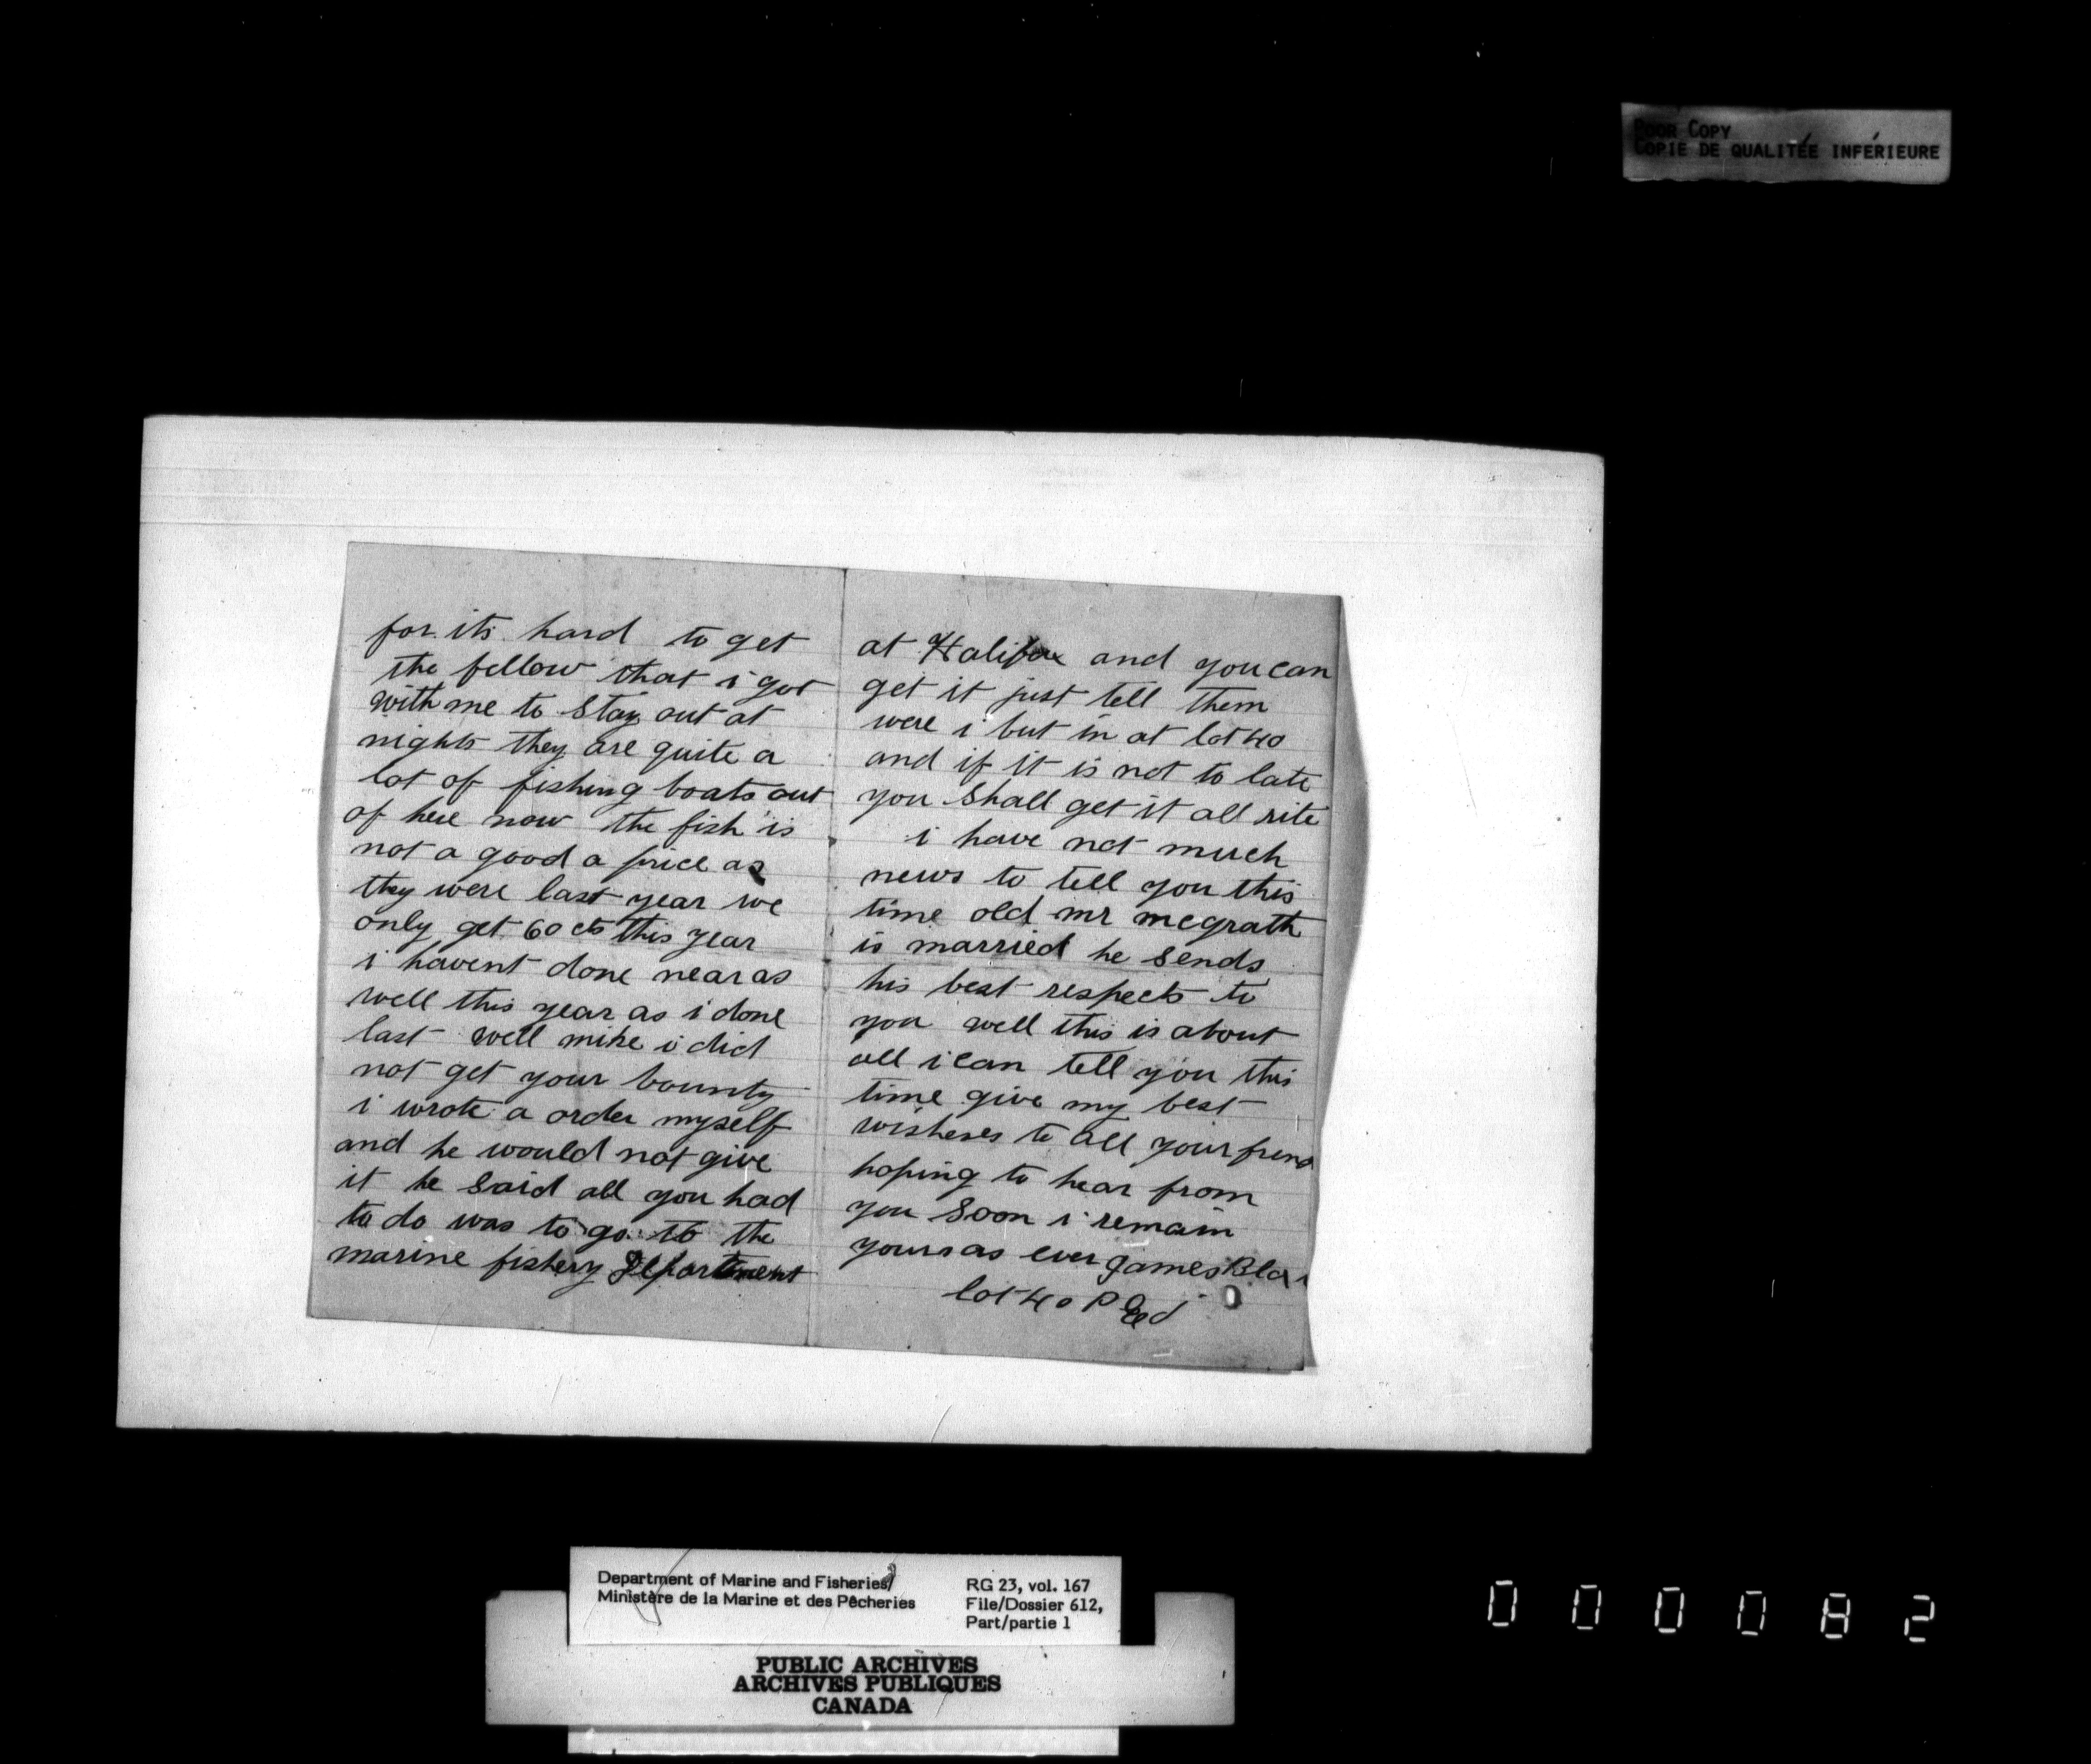 POOR COPY
COPIE DE QUALITÉE INFÉRIEURE
for its hard to get
the fellow that i got
with me to stay out at
nights they are quite a
lot of fishing boats out
of here now the fish is
not a good a price as
they were last year we
only get 60 cts this year
i havent done near as
well this year as i done
last well mike i did
not get your bounty
i wrote a order myself
and he would not give
it he said all you had
to do was to go to the
marine fishery Department
at Halifax and you can
get it just tell them
were i but in at lot 40
and if it is not to late
you shall get it all rite
i have not much
news to tell you this
time old mr mcgrath
is married he sends
his best respects to
you well this is about
all i can tell you this
time give my best
wisheses to all your frend
hoping to hear from
you soon i remain
yours as ever James
lot 40 P
Department of Marine and Fisheries/
Ministère de la Marine et des Pêcheries
RG 23, vol. 167
File/Dossier 612,
Part/partie 1
PUBLIC ARCHIVES
ARCHIVES PUBLIQUES
CANADA
000082